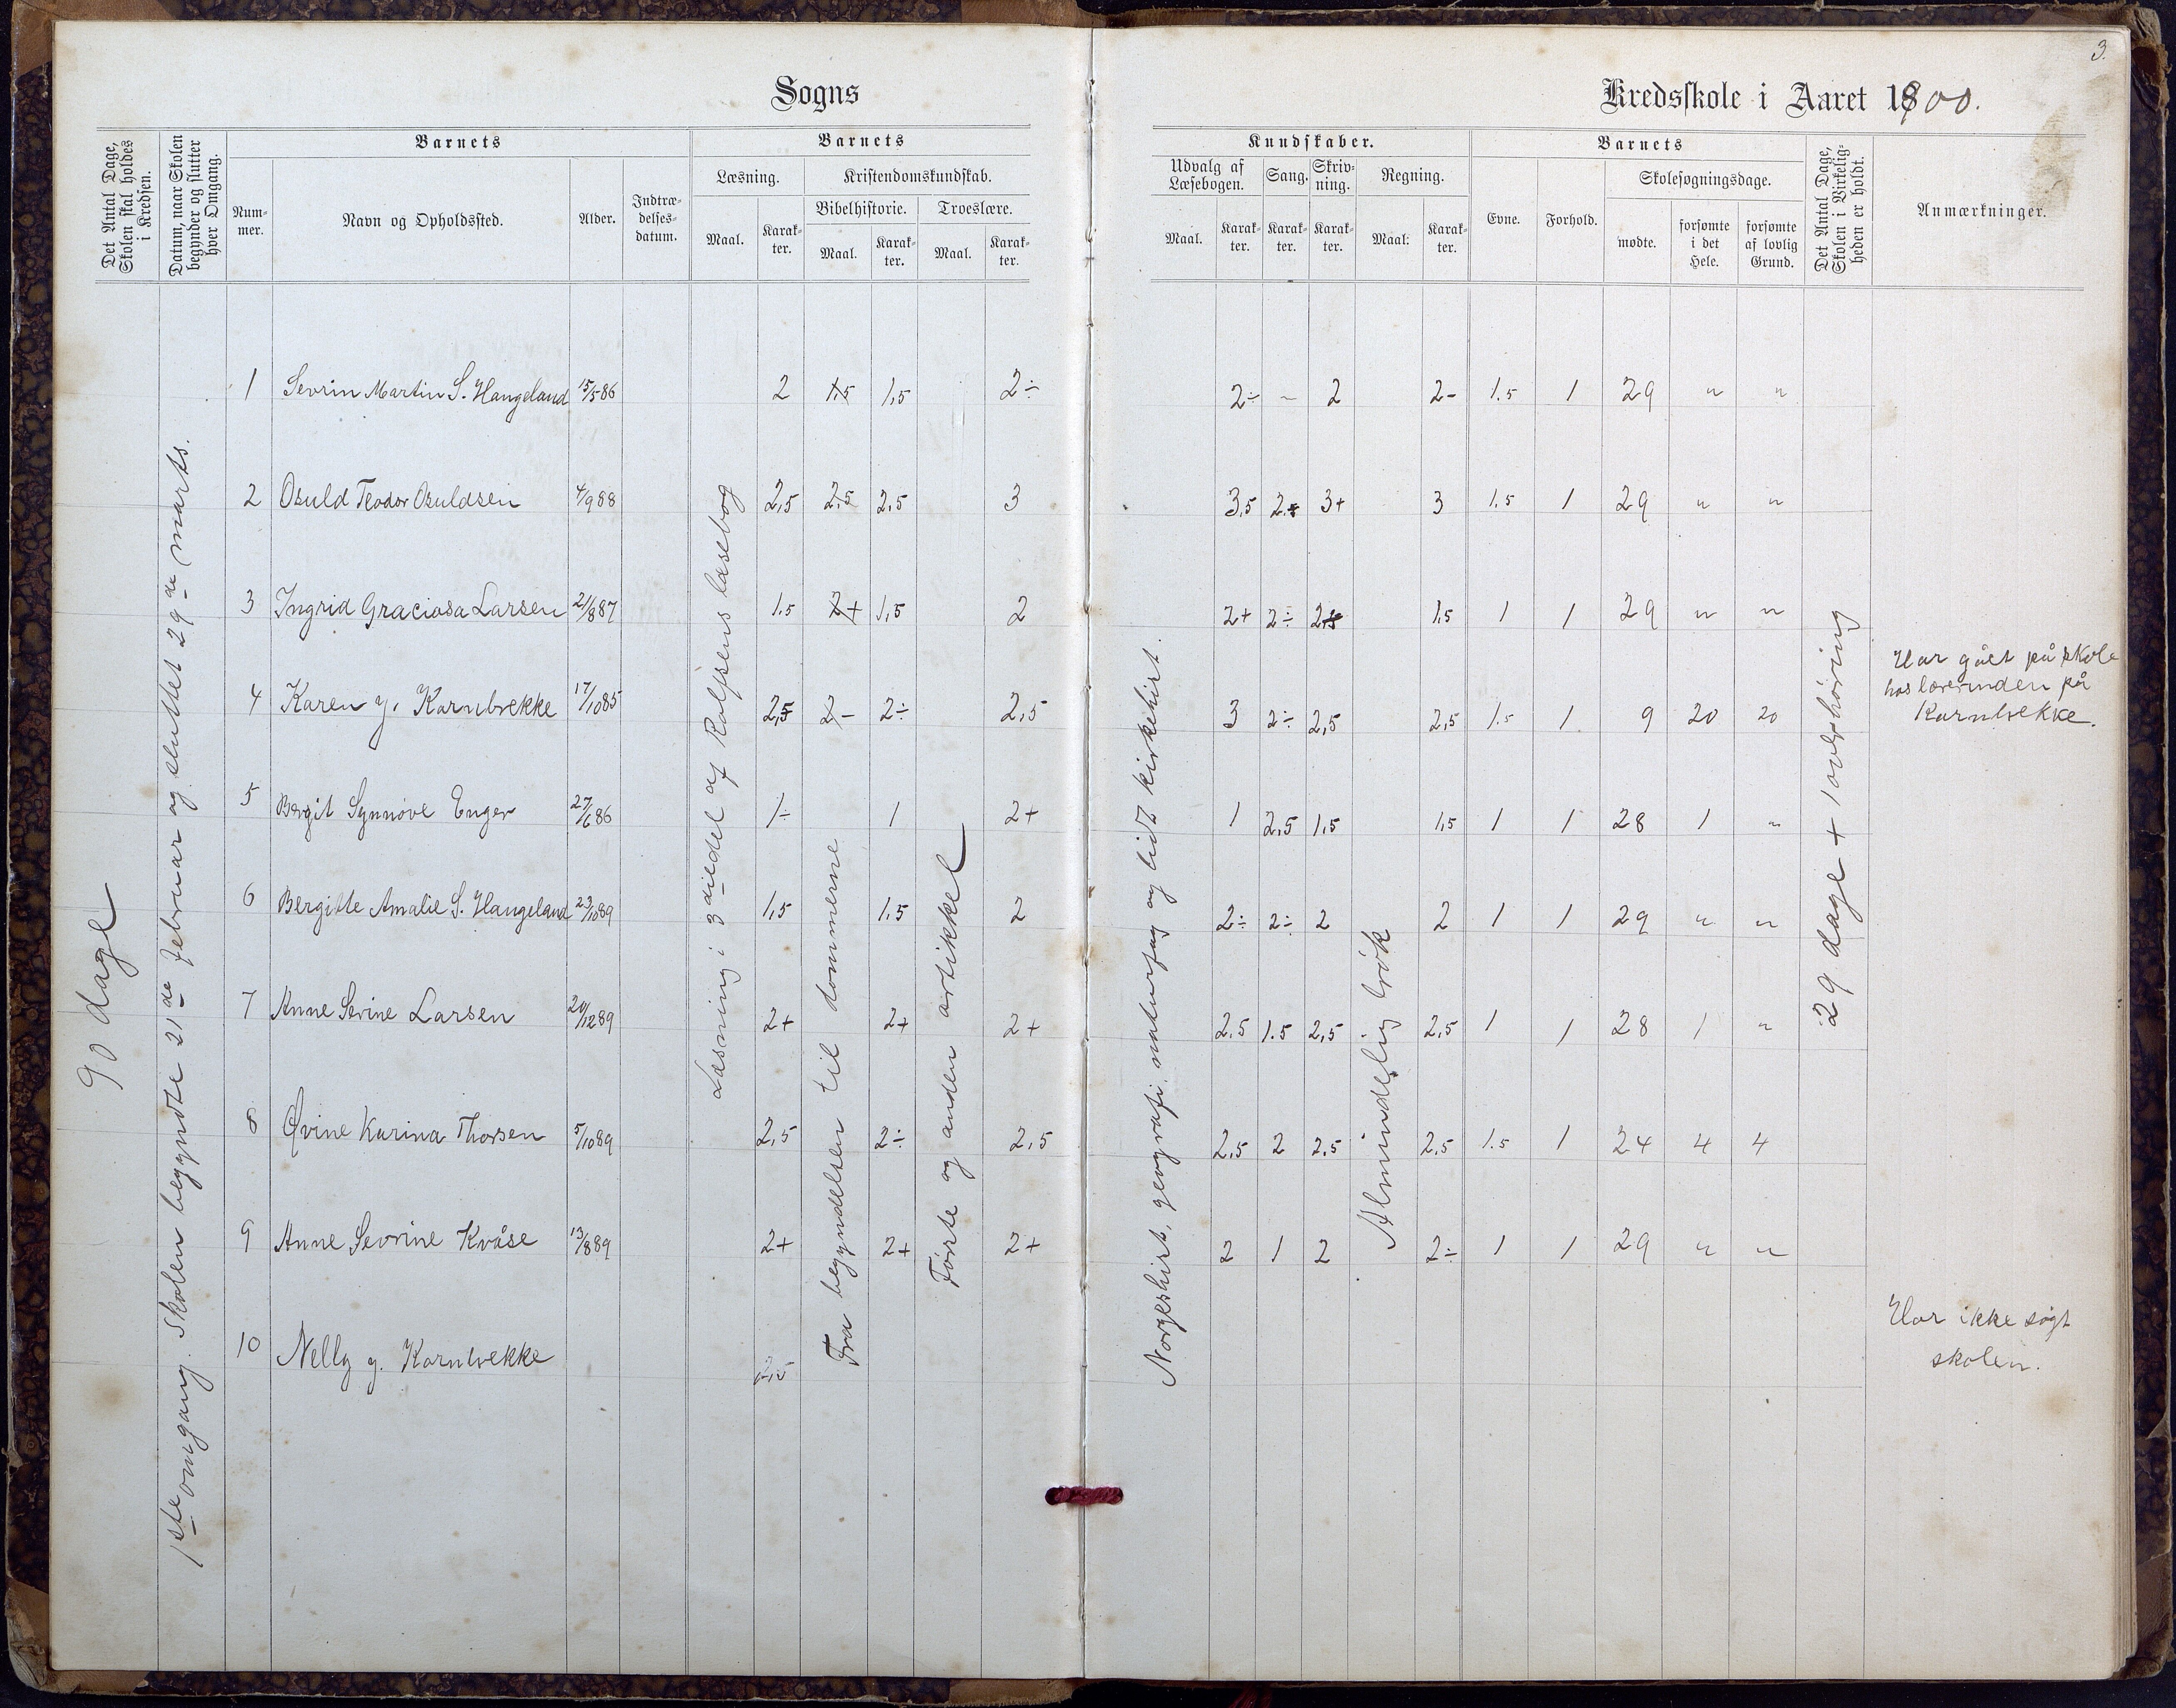 3.
Sogns
Kredsskole i Aaret 1900.
Det Antal Dage, Skolen skal holdes i Kredsen.
Datum, naar Skolen begynder og slutter hver Omgang.
Barnets
Barnets
Kundskaber.
Barnets
Det Antal Dage, Skolen i Virkeligheden er holdt.
Anmærkninger.
Nummer.
Navn og Opholdssted.
Alder.
Indtrædelsesdatum.
Læsning.
Kristendomskundskab.
Bibelhistorie.
Troeslære.
Maal.
Karakter.
Maal.
Karakter.
Maal.
Karakter.
Udvalg af Læsebogen.
Sang.
Skrivning.
Regning.
Maal.
Karakter.
Karakter.
Karakter.
Maal.
Karakter.
Evne.
Forhold.
Skolesøgningsdage.
mødte.
forsømte i det Hele.
forsømte af lovlig Grund.
90 dage
1ste omgang. Skolen begyndte 21de februar og sluttet 29de marts.
Læsning i 3die del af Rolfsens læsebog
Fra begyndelsen til dommerne
Første og anden artikkel
Norgeshist, geografi, naturfag og lidt kirkehist.
Almindelig brøk
29 dage + 1 overhøring
1 Sevrin Martin S. Haugeland 15/5 86 2 1,5 1,5 2÷ 2÷ 2 2- 1.5 1 29 " "
2 Osuld Teodor Osuldsen 4/9 88 2,5 2,5 2,5 3 3,5 3+ 3 1.5 1 29 " "
3 Ingrid Graciosa Larsen 21/8 87 1.5 1,5 2 2+ 2÷ 1,5 1 1 29 " "
4 Karen g. Kornbrekke 17/10 85 2,5 2÷ 2,5 3 2÷ 2,5 2,5 1.5 1 9 20 20 Har gået på skole
hos lærerinden på
Kornbrekke.
5 Bergit Synnøve Enger 27/6 86 1÷ 1 2+ 1 2,5 1,5 1,5 1 1 28 1 "
6 Bergitte Amalie S. Haugeland 23/10 89 1,5 1.5 2 2÷ 2÷ 2 2 1 1 29 " "
7 Anne Serine Larsen 20/12 89 2+ 2+ 2+ 2.5 1.5 2,5 2,5 1 1 28 1 "
8 Øvine Karina Thorsen 5/10 89 2,5 2÷ 2,5 2,5 2 2,5 2,5 1.5 1 24 4 4
9 Anne Sevrine Kvåse 13/8 89 2+ 2+ 2+ 2 1 2 2÷ 1 1 29 " "
10 Nelly g. Kornbrekke Har ikke søgt
skolen.